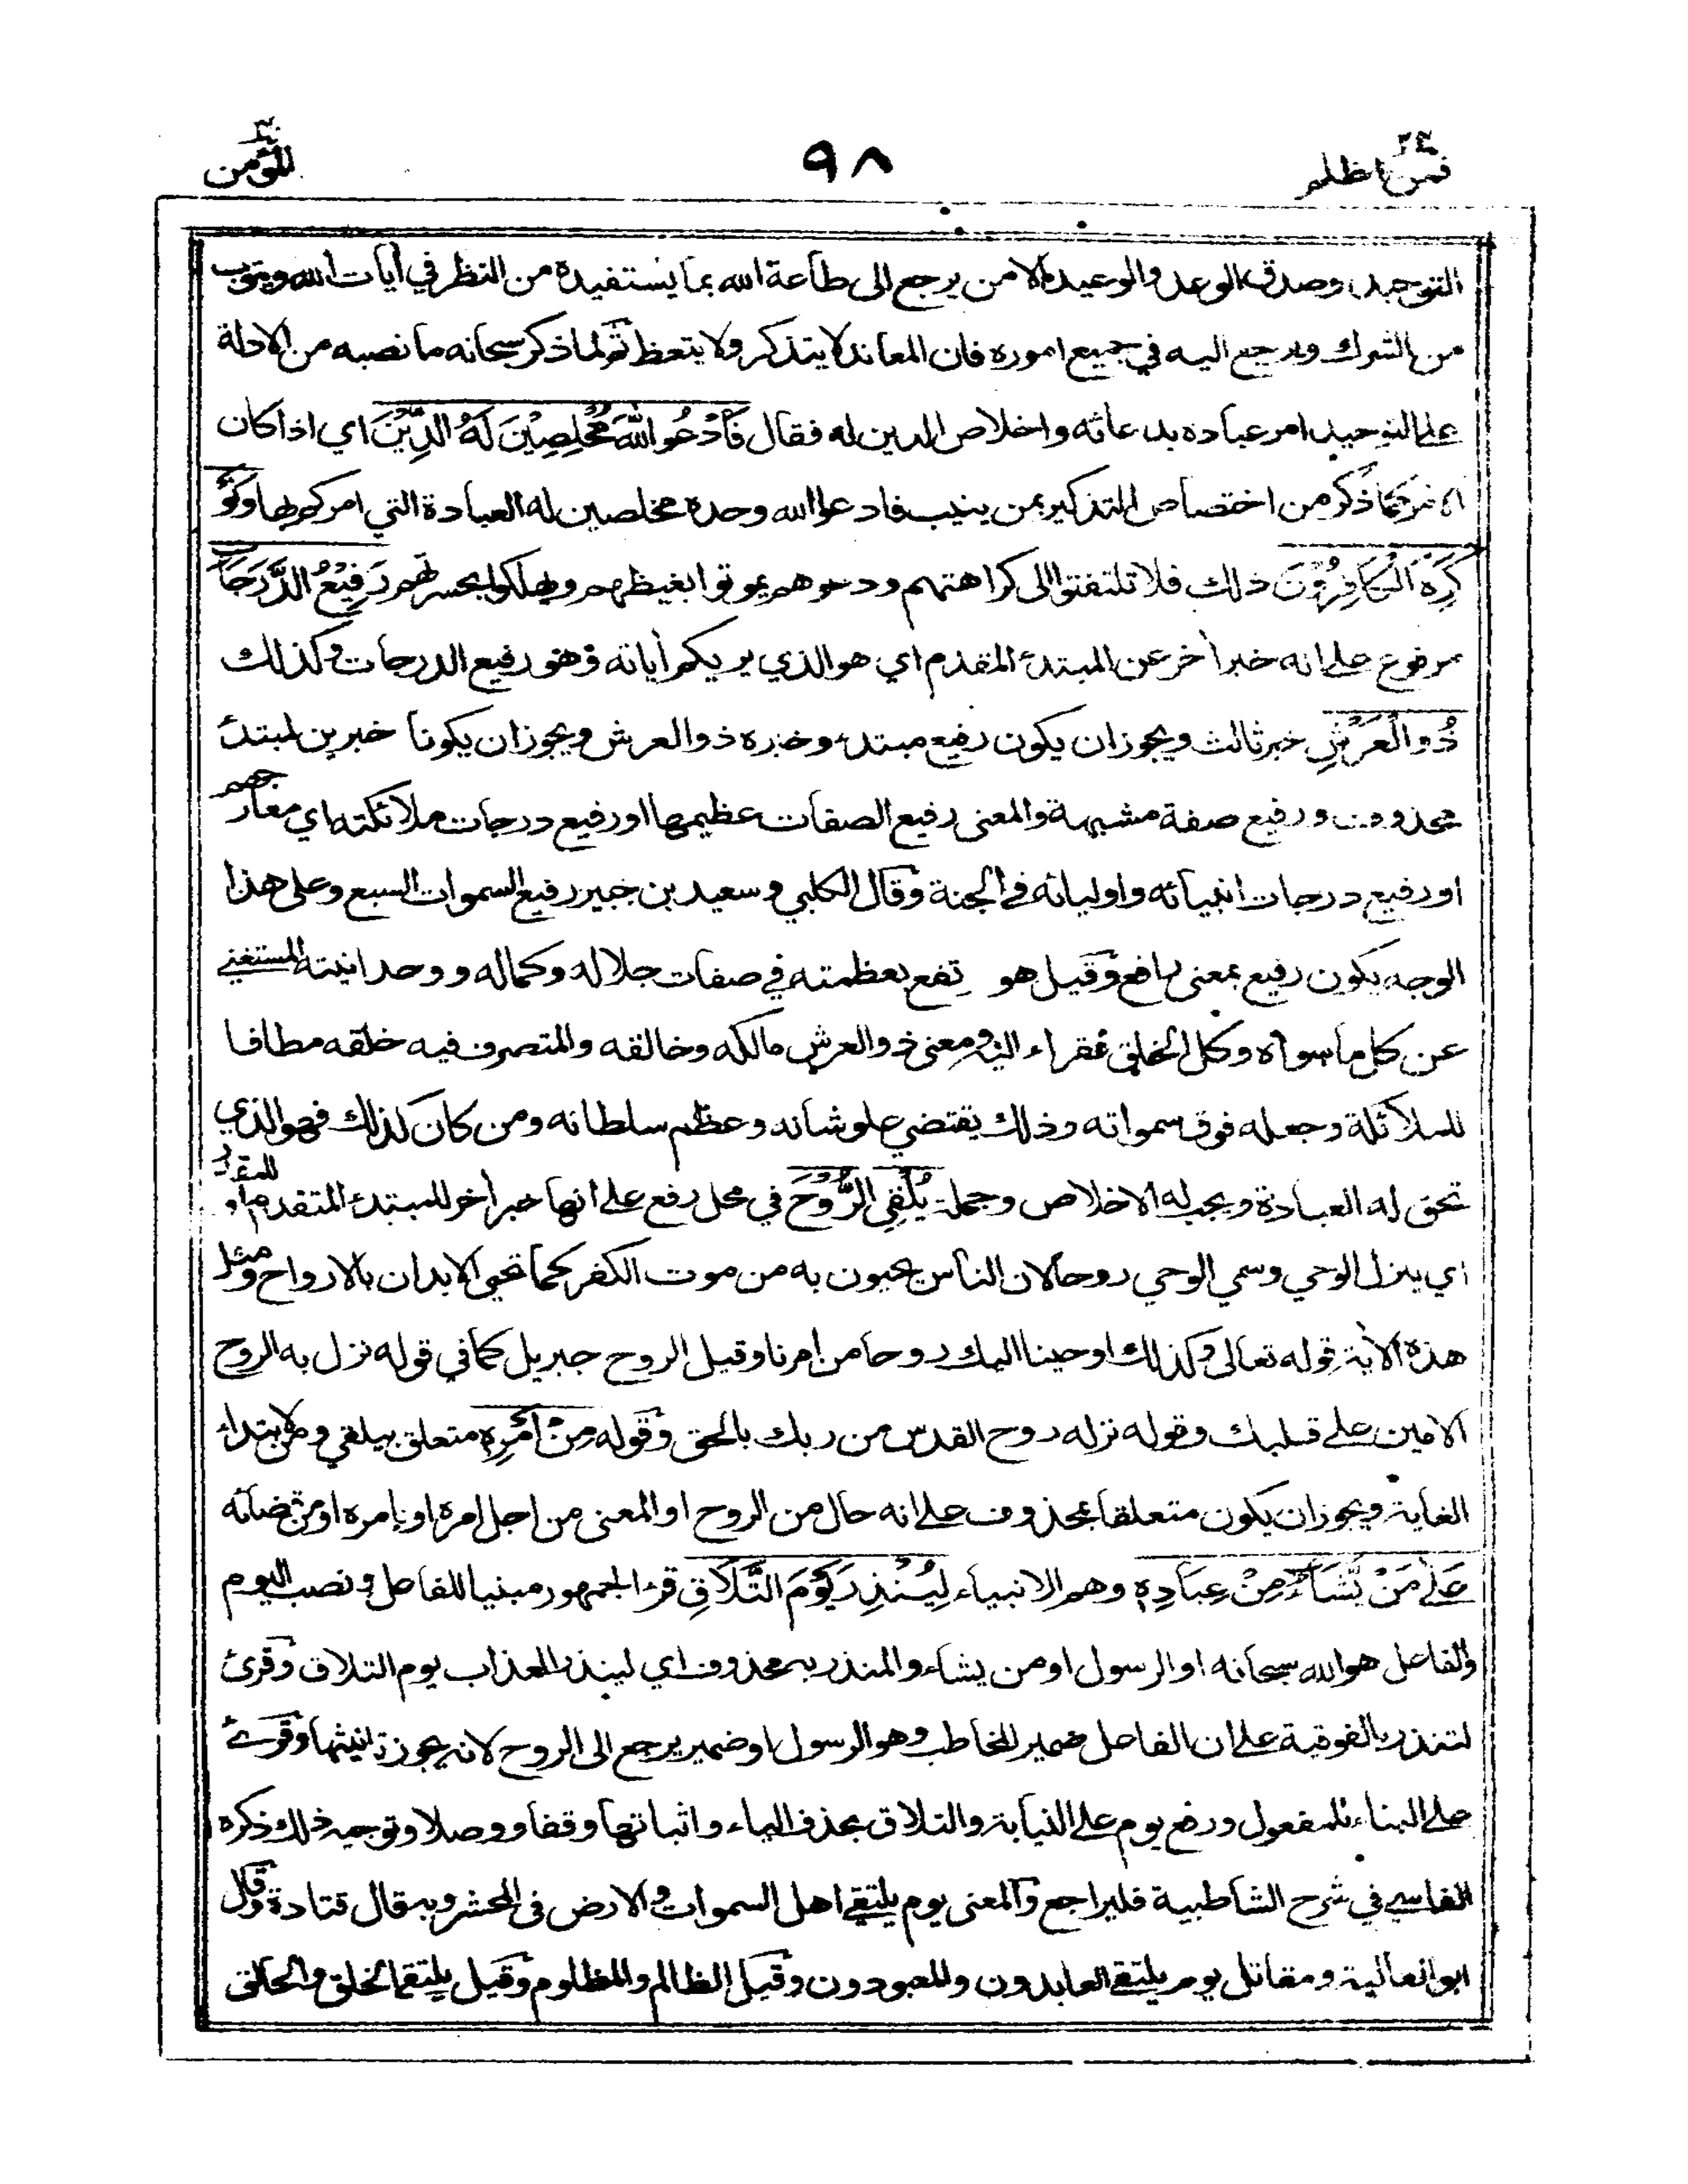 فمن اظلم ٢٤
٩٨
المؤمن ٤٠
التوحيد وصدق الوعد والوعيد الا من يرجع الى طاعة الله بما يستفيده من النظر في أيات الله ويتوب
من الشرك ويرجع اليه في جميع اموره فان المعاند لا يتذكر ولا يتعظ ثم لما ذكر سبحانه ما نصبه من الادلة
على التوحيد امر عباده بدعائه واخلاص الدين له فقال فَادْعُوا اللهَ مُخْلِصِيْنَ لَهُ الدِّيْنَ اي اذا كان
الامر كما ذكر من اختصاص التذكير بمن ينيب فادعوا الله وحده مخلصين له العبادة التي امركم بها وَلَوْ
كَرِهَ الْكَافِرُوْنَ ذلك فلا تلتفتوا الى كراهتهم ودعوهم يموتوا بغيظهم ويهلكوا بحسرتهم رَفِيْعُ الدَّرَجَاتِ
مرفوع على انه خبر أخر عن المبتدئ المقدم اي هو الذي يريكم أياته وهو رفيع الدرجات وكذلك
ذُو الْعَرْشِ خبر ثالث ويجوز ان يكون رفيع مبتدء وخبره ذو العرش ويجوز ان يكونا خبرين لمبتدئ
محذوف ورفيع صفة مشبهة والمعنى رفيع الصفات عظيمها او رفيع درجات ملائكته اي معارجهم
او رفيع درجات انبيائه واوليائه في الجنة وقال الكلبي وسعيد بن جبير رفيع السموات السبع وعلى هذا
الوجه يكون رفيع بمعنى رافع وقيل هو تفع بعظمته في صفات جلاله وكماله ووحدانيته المستغني
عن كل ما سواه وكل الخلق فقراء اليه ومعنى ذو العرش مالكه وخالقه والمتصرف فيه خلقه مطافا
للملائكة وجعله فوق سمواته وذلك يقتضي علو شانه وعظم سلطانه ومن كان كذلك فهو الذي
تحق له العبادة ويجب له الاخلاص وجملة يُلْقِي الرُّوْحَ في محل رفع على انها خبر أخر للمبتدئ المتقدم او للمقدر
اي ينزل الوحي وسمي الوحي روحا لان الناس يحيون به من موت الكفر كما تحيى الابدان بالارواح ومثل
هذه الأية قوله تعالى وكذلك اوحينا اليك روحا من امرنا وقيل الروح جبريل كما في قوله نزل به الروح
الامين على قلبك وقوله نزله روح القدس من ربك بالحق وقوله مِنْ اَمْرِهِ متعلق بيلقي ومن لابتداء
الغاية ويجوز ان يكون متعلقا بمحذوف على انه حال من الروح او المعنى من اجل امره او بامره او من قضائه
عَلٰى مَنْ يَّشَآءُ مِنْ عِبَادِهِ وهم الانبياء لِيُنْذِرَ يَوْمَ التَّلَاقِ قرء الجمهور مبنيا للفاعل ونصب اليوم
والفاعل هو الله سبحانه او الرسول او من يشاء والمنذر به محذوف اي لينذر العذاب يوم التلاق وقرئ
لتنذر بالفوقية على ان الفاعل ضمير المخاطب وهو الرسول او ضمير يرجع الى الروح لانه يجوز تانيثها وقرئ
على البناء للمفعول ورفع يوم على النيابة والتلاق بحذف الياء واثباتها وقفا ووصلا وتوجيه ذلك ذكره
الفاسي في شرح الشاطبية فليراجع والمعنى يوم يلتقي اهل السموات والارض في المحشر وبه قال قتادة وقال
ابو العالية ومقاتل يوم يلتقي العابدون والمعبودون وقيل الظالم والمظلوم وقيل يلتقي الخلق والخالق